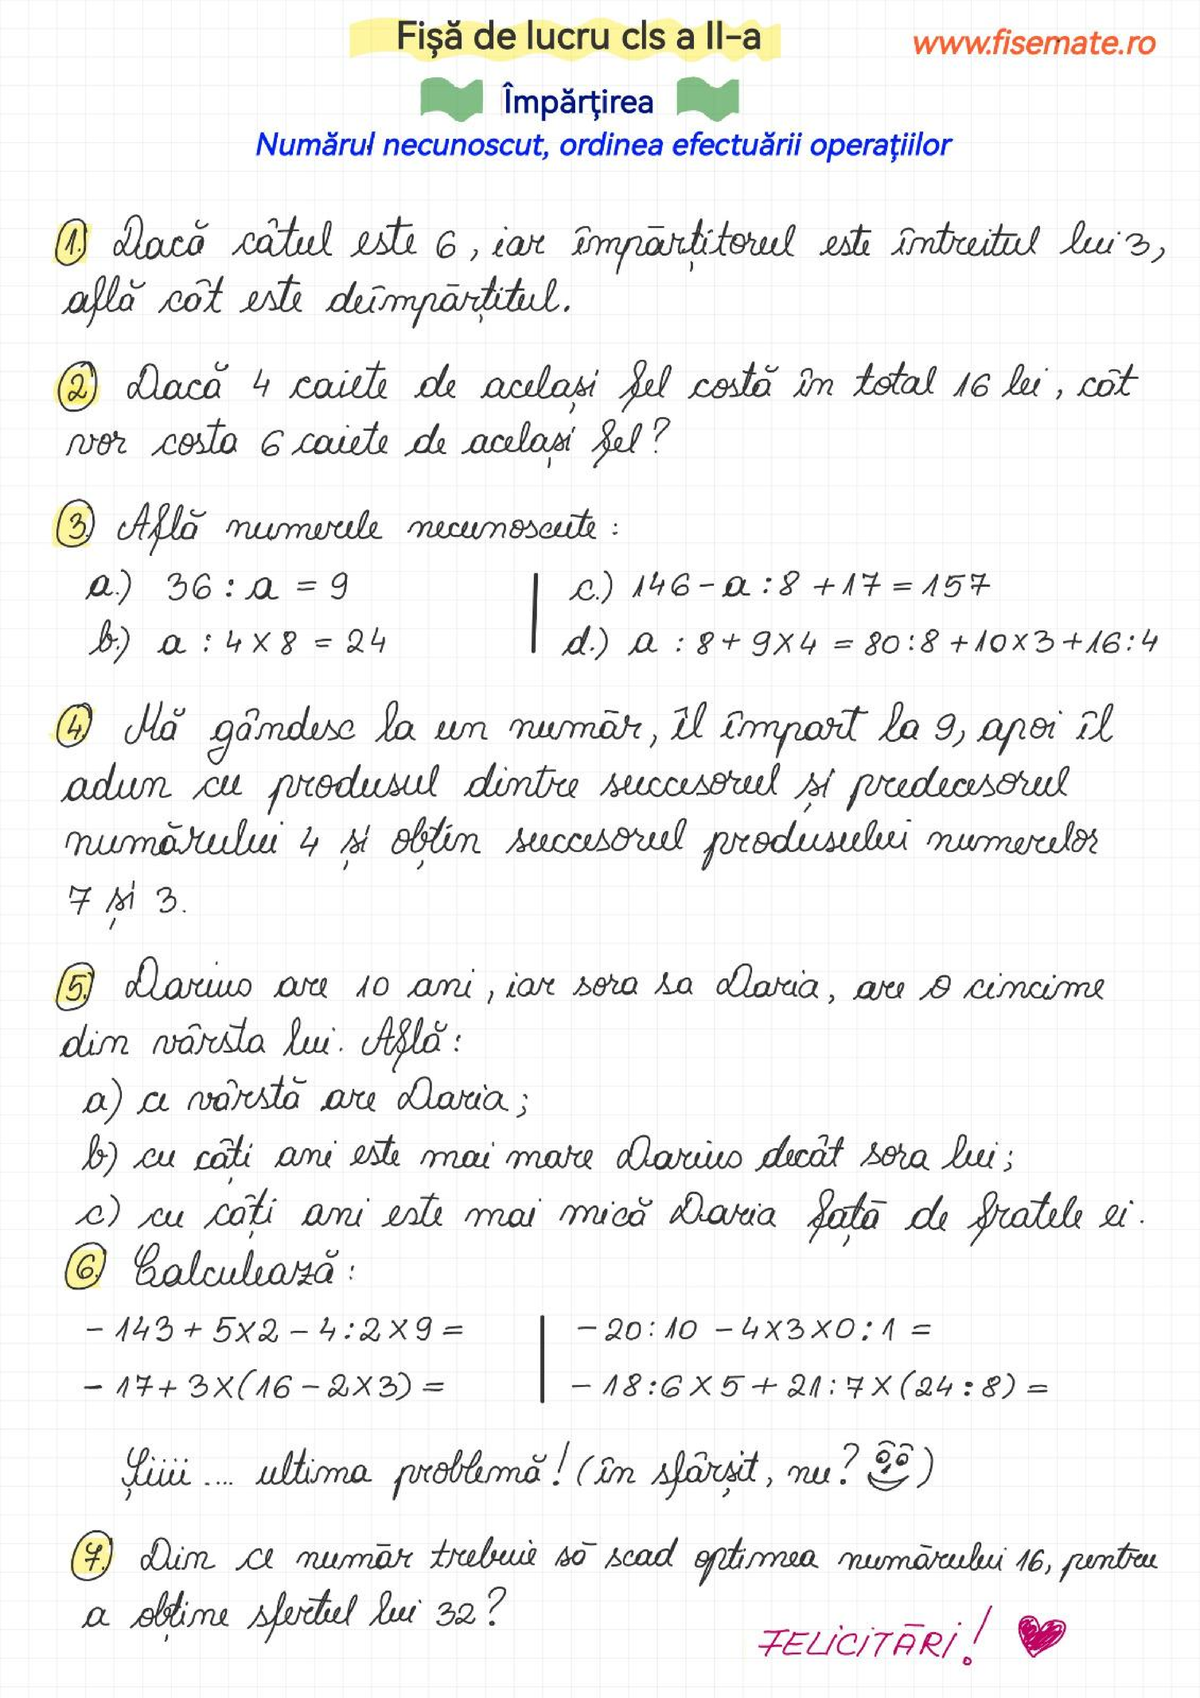 Fișă de lucru cls a II-a
www.fisemate.ro
Împărțirea
Numărul necunoscut, ordinea efectuării operațiilor
1. Dacă câtul este 6, iar împărțitorul este întreitul lui 3,
află cât este deîmpărțitul.
2. Dacă 4 caiete de același fel costă în total 16 lei, cât
vor costa 6 caiete de același fel?
3. Află numerele necunoscute:
a.) 36 : a = 9
b.) a : 4 x 8 = 24
c.) 146 - a : 8 + 17 = 157
d.) a : 8 + 9 x 4 = 80 : 8 + 10 x 3 + 16 : 4
4. Mă gândesc la un număr, îl împart la 9, apoi îl
adun cu produsul dintre succesorul și predecesorul
numărului 4 și obțin succesorul produsului numerelor
7 și 3.
5. Darius are 10 ani, iar sora sa Daria, are o cincime
din vârsta lui. Află:
a) ce vârstă are Daria;
b) cu câți ani este mai mare Darius decât sora lui;
c) cu câți ani este mai mică Daria față de fratele ei.
6. Calculează:
- 143 + 5 x 2 - 4 : 2 x 9 =
- 17 + 3 x (16 - 2 x 3) =
- 20 : 10 - 4 x 3 x 0 : 1 =
- 18 : 6 x 5 + 21 : 7 x (24 : 8) =
Șiiii .... ultima problemă! (în sfârșit, nu? )
7. Din ce număr trebuie să scad optimea numărului 16, pentru
a obține sfertul lui 32?
FELICITĂRI!